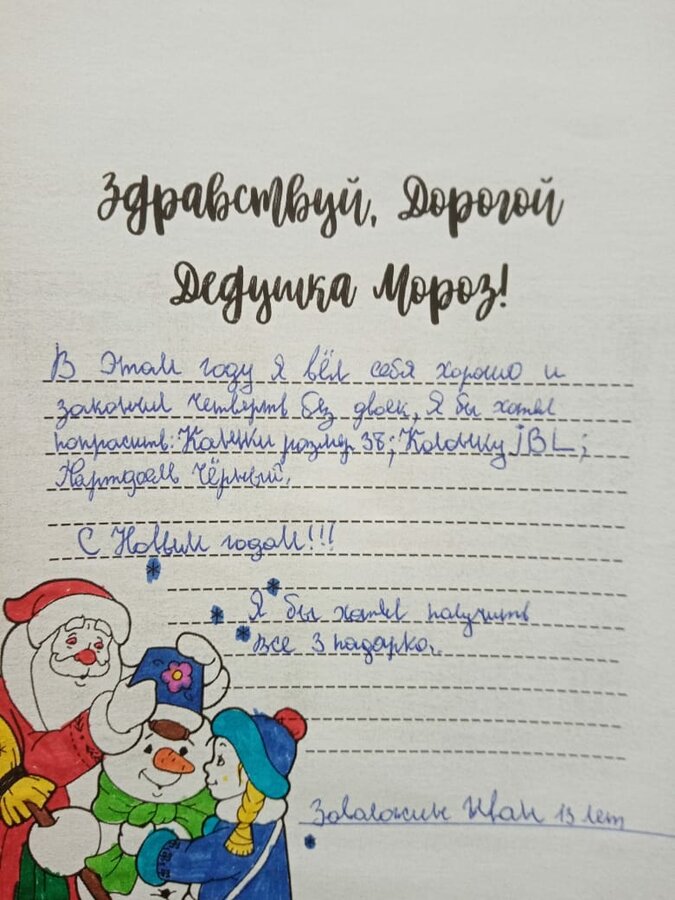 Здравствуй, Дорогой
Дедушка Мороз!
В этом году я вёл себя хорошо и
закончил четверть без двоек, Я бы хотел
попросить: Коньки розмер 38; Колонку JBL;
Чёрный.
С Новым годом!!!
Я бы хотел получить
Все 3 подарка.
Иван 13 лет